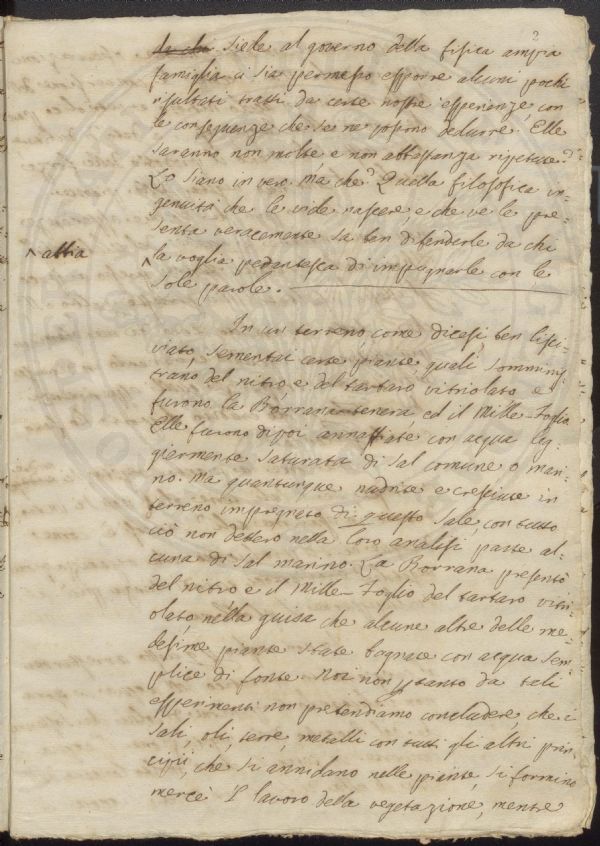 2
siede al governo della fisica ampia
famiglia ci sia permesso esporre alcuni pochi
risultati tratti da certe nostre esperienze, con
le conseguenze che se ne posono dedurre. Elle
saranno non molte e non abbastanza ripetute?
Lo siano in vero. Ma che? Quella filosofica in-
genuità che le vide nascere e che ve le pre-
senta veracemente sa ben difenderle da chi
^ abbia
^ la voglia pedantesca di impugnarle con le
sole parole.
In un terreno come dicesi, ben lisci-
viato, sementai certe piante, quali sommini-
strano del nitro e del tartaro vitriolato, e
furono la Borrana tenera ed il Mille-foglio
Elle furono di poi annaffiate con acqua leg-
giermente saturata di sal comune o mari-
no. Ma quantunque nudrite e cresciute in
terreno impregnato di questo sale con tutto
ciò non dettero nella loro analisi parte al-
cuna di sal marino. La Borrana presentò
del nitro e il Mille-foglio del tartaro vitri-
olato nella guisa che alcune altre delle me-
desime piante state bagnate con acqua sem
plice di fonte. Noi non ptanto da tali
esperimenti non pretendiamo concludere che i
sali, oli, terre, metalli con tutti gli altri prin
cipii, che si annidano nelle piante, si formino
mercè l lavoro della vegetazione, mentre